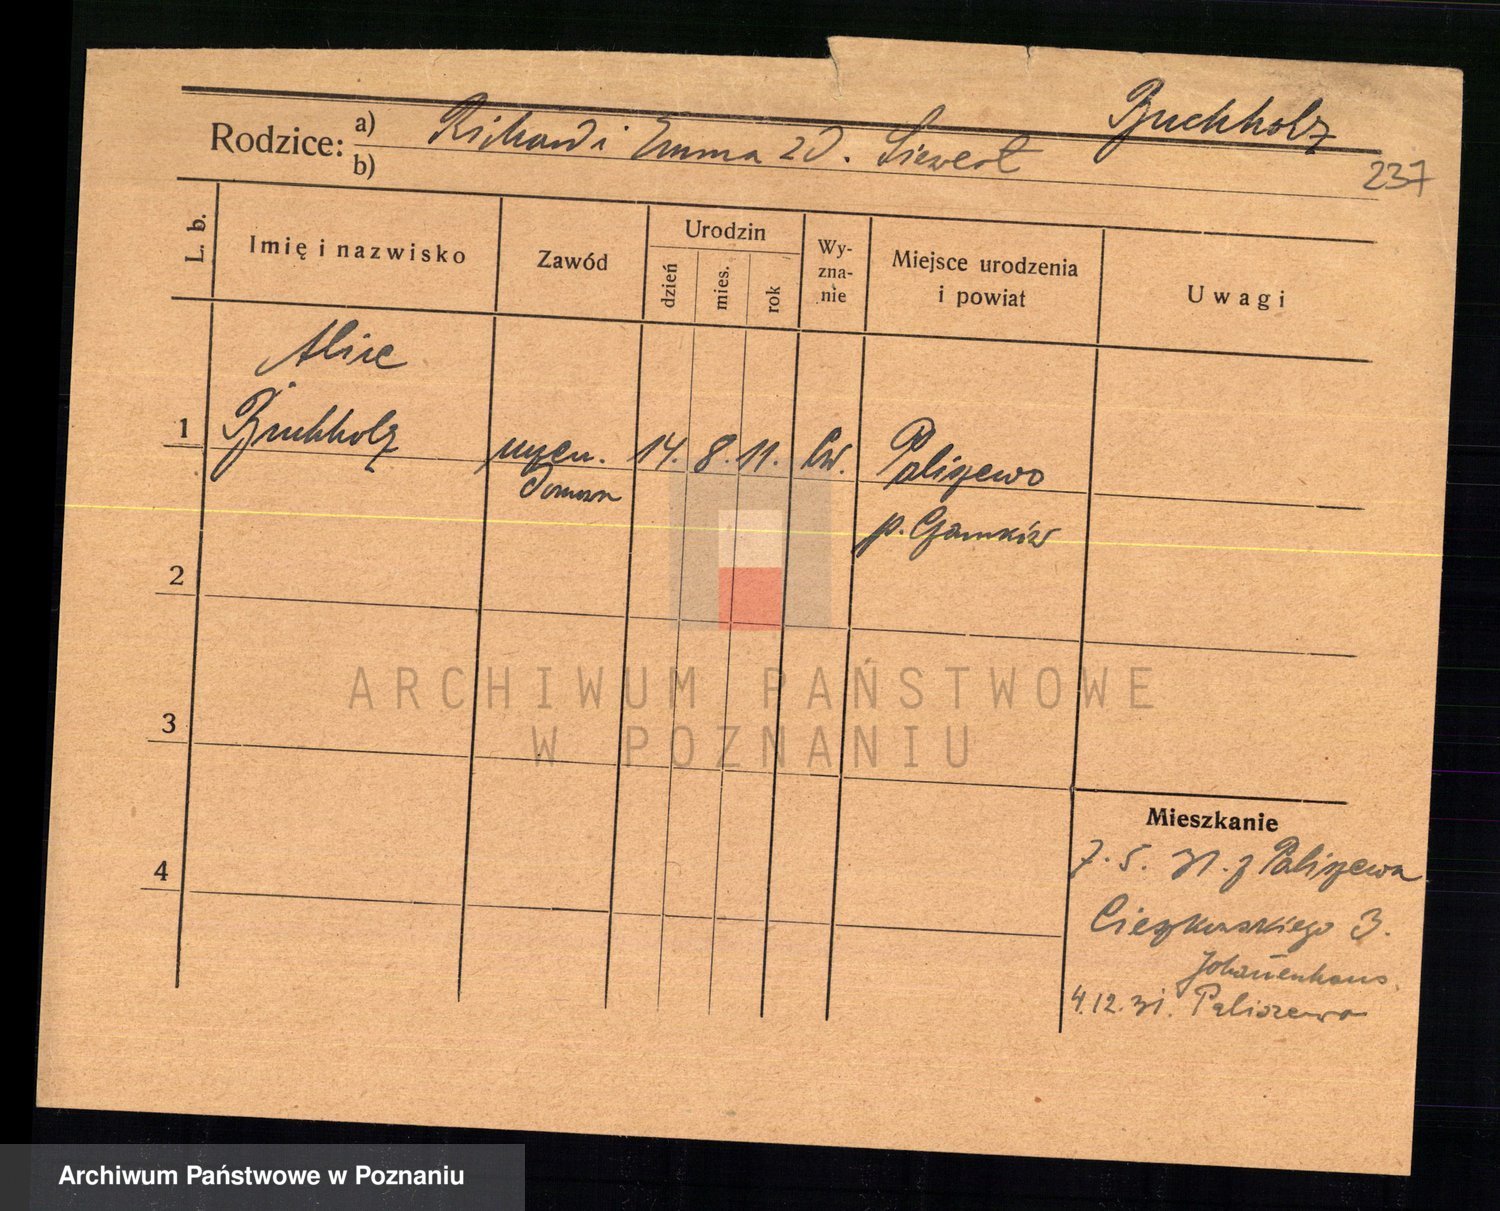 Buchholz
Rodzice: a) Richard i Emma zd. Siewert
b)
237
L. b.
Imię i nazwisko
Zawód
Urodzin
dzień
mies.
rok
Wy-
zna-
nie
Miejsce urodzenia
i powiat
Uwagi
Alice
1 Buchholz uczen. 14. 8. 11. Ew. Paliszewo
Domowa
p. Czarnków
2
ARCHIWUM PAŃSTWOWE
W POZNANIU
3
4
Mieszkanie
7. 5. 31. z Paliszewa
Cieszkowskiego 3.
Johannenhaus.
4.12.31. Paliszewo
Archiwum Państwowe w Poznaniu